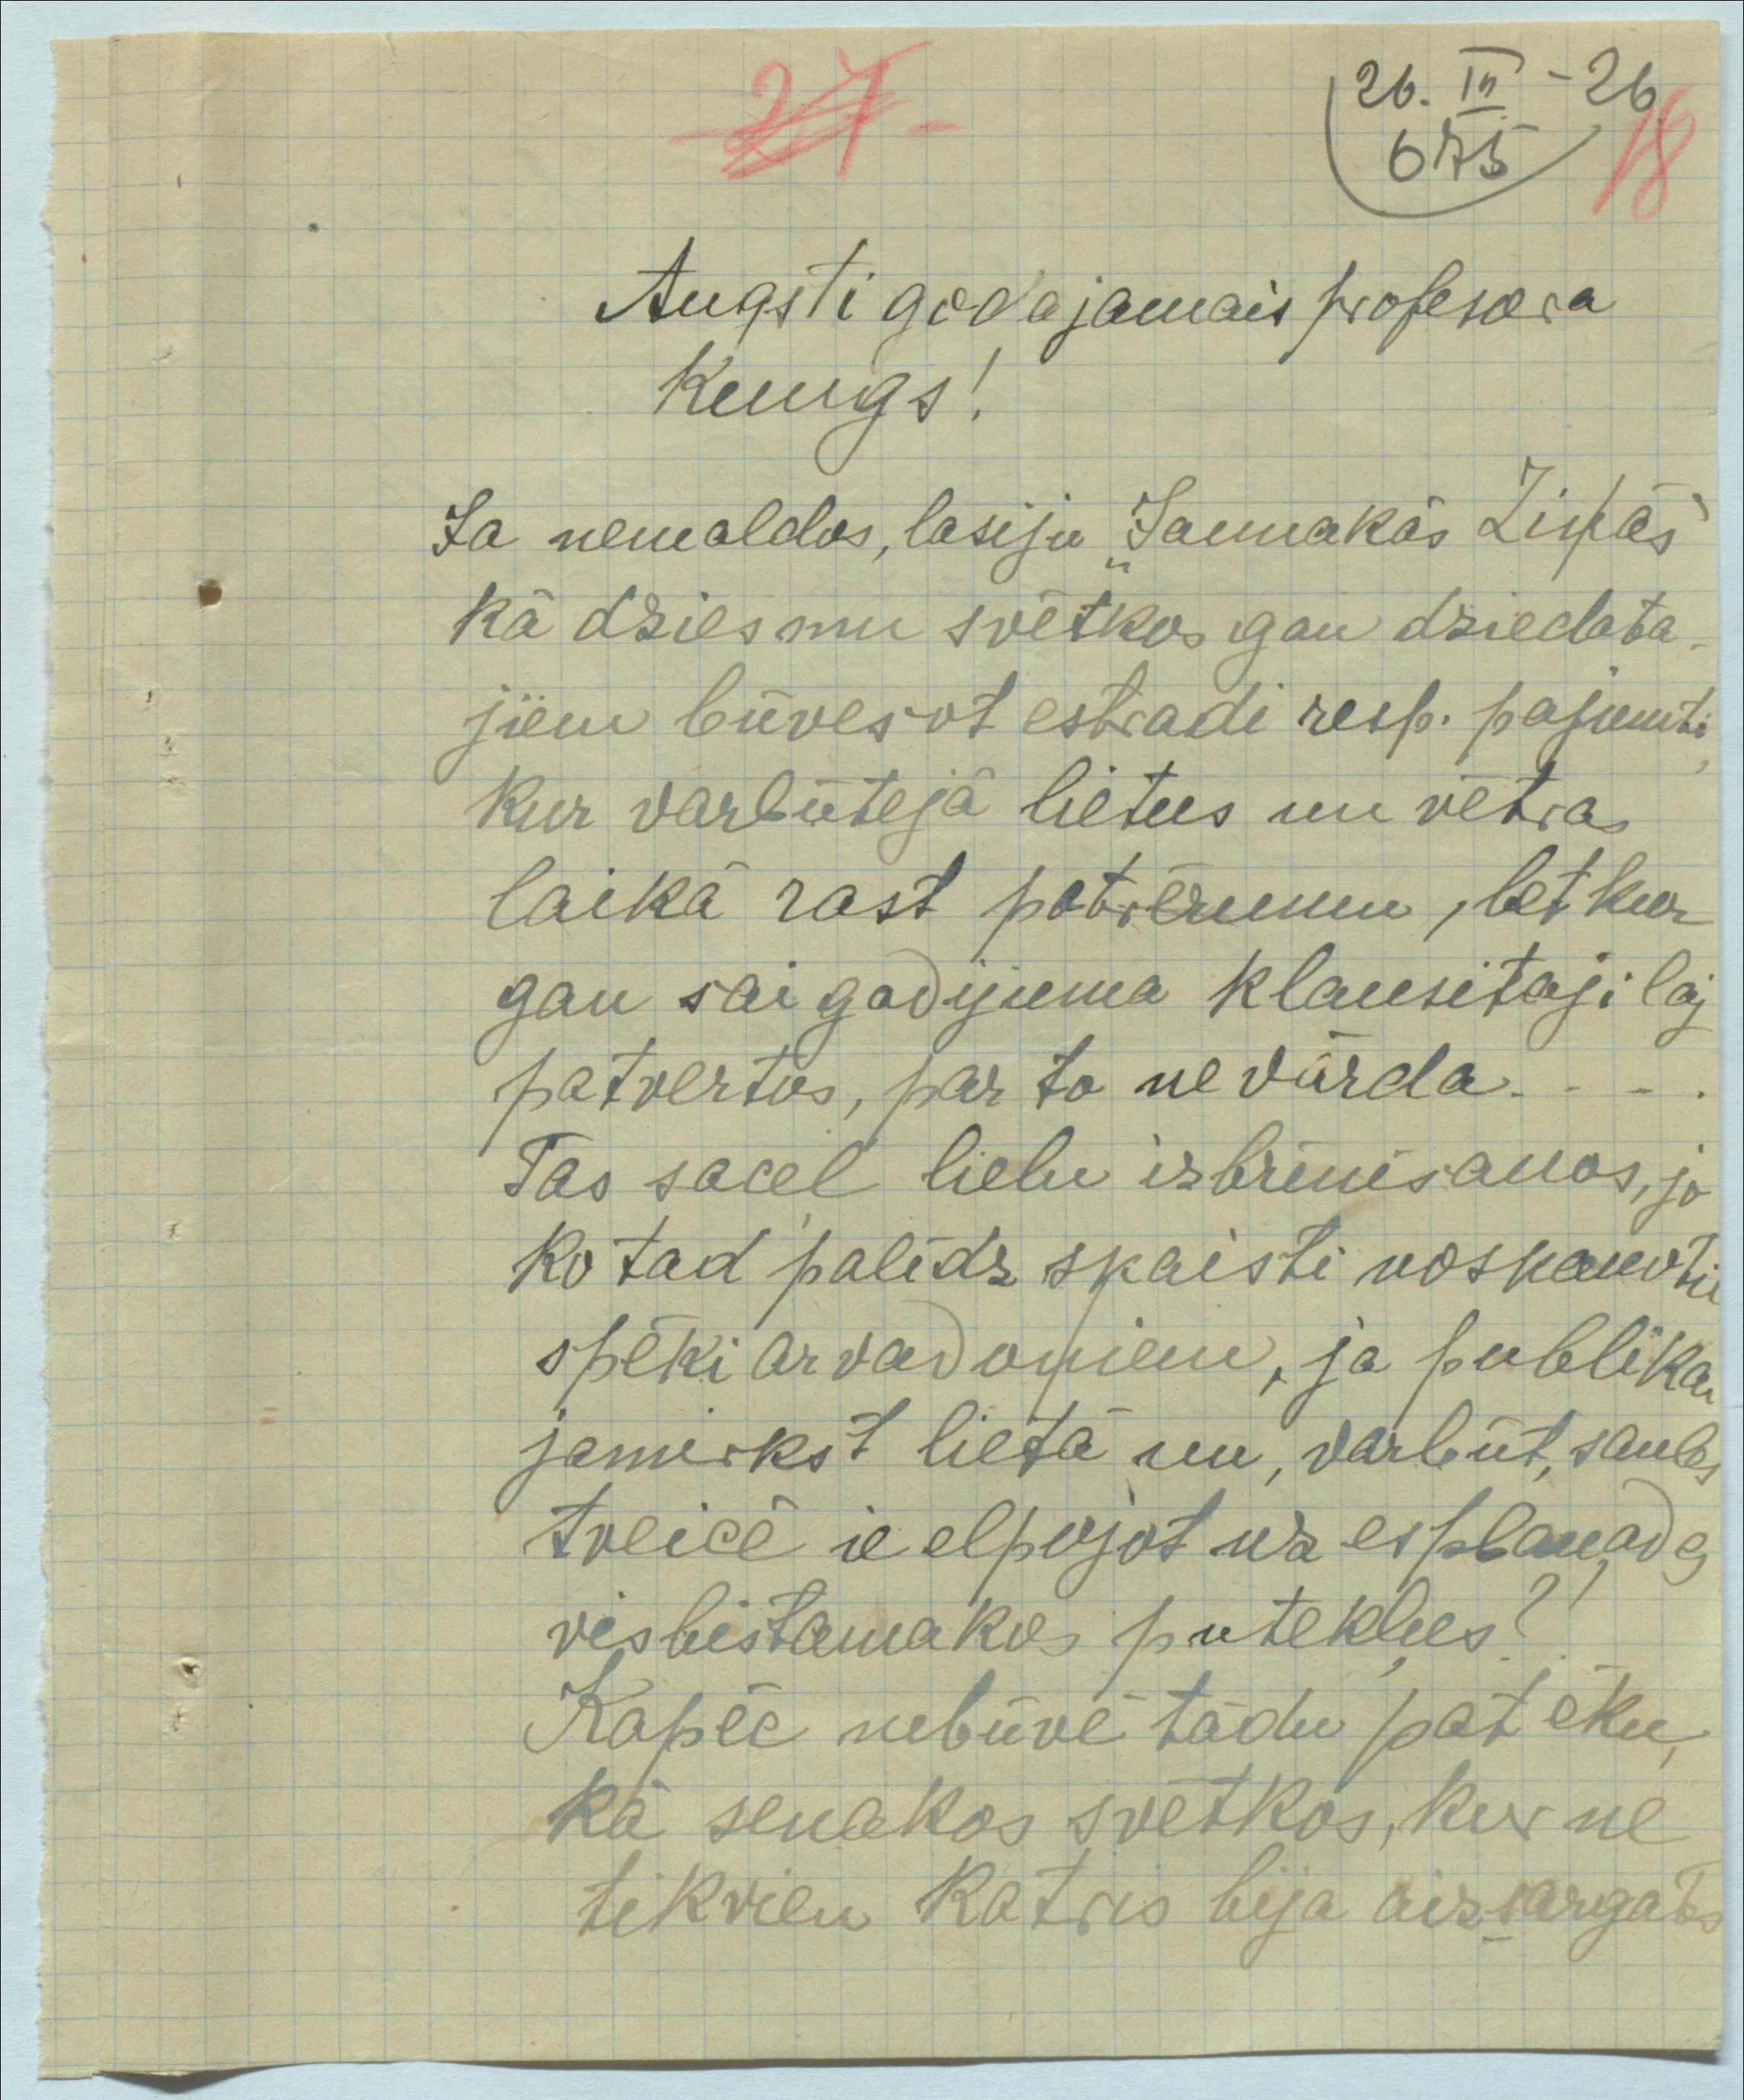 27
26. III - 26
675
18
Augsti godajamais profesora
Kungs!
Ja nemaldos, lasiju „Jaunakās Ziņās“
kā dziesmu svētkos gan dziedata-
jiem būvesot estradi resp. pajumti,
kur varbūtejā lietus un vētras
laikā rast patvērumu, bet kur
gan sai gadijuma klausitaji laj
patvertos, par to ne vārda. - - .
Tas saceļ lielu izbrinisanos, jo
ko tad palīdz skaisti noskaņoti
spēki ar vadoņiem, ja publikai
jamirkst lietā un, varbūt, saules
tveicē ieelpojot uz esplanades
visbistamakos putekļus?!
Kapēc nebūvē tādu pat ēku,
kā senakos svētkos, kur ne
tikvien katris bija aizsargats